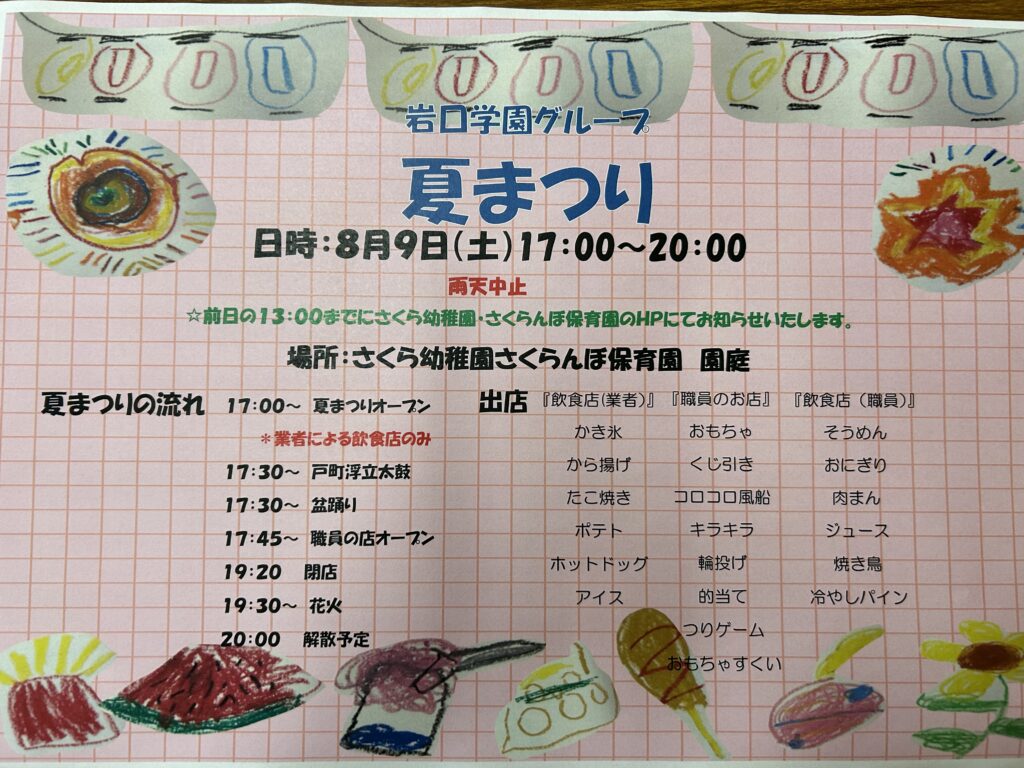 岩口学園グループ
夏まつり
日時:8月9日(土)17:00~20:00
雨天中止
☆前日の13:00までにさくら幼稚園・さくらんぼ保育園のHPにてお知らせいたします。
場所:さくら幼稚園さくらんぼ保育園 園庭
夏まつりの流れ
17:00~ 夏まつりオープン
*業者による飲食店のみ
17:30~ 戸町浮立太鼓
17:30~ 盆踊り
17:45~ 職員の店オープン
19:20 閉店
19:30~ 花火
20:00 解散予定
出店
『飲食店(業者)』
かき氷
から揚げ
たこ焼き
ポテト
ホットドッグ
アイス
『職員のお店』
おもちゃ
くじ引き
コロコロ風船
キラキラ
輪投げ
的当て
つりゲーム
おもちゃすくい
『飲食店(職員)』
そうめん
おにぎり
肉まん
ジュース
焼き鳥
冷やしパイン